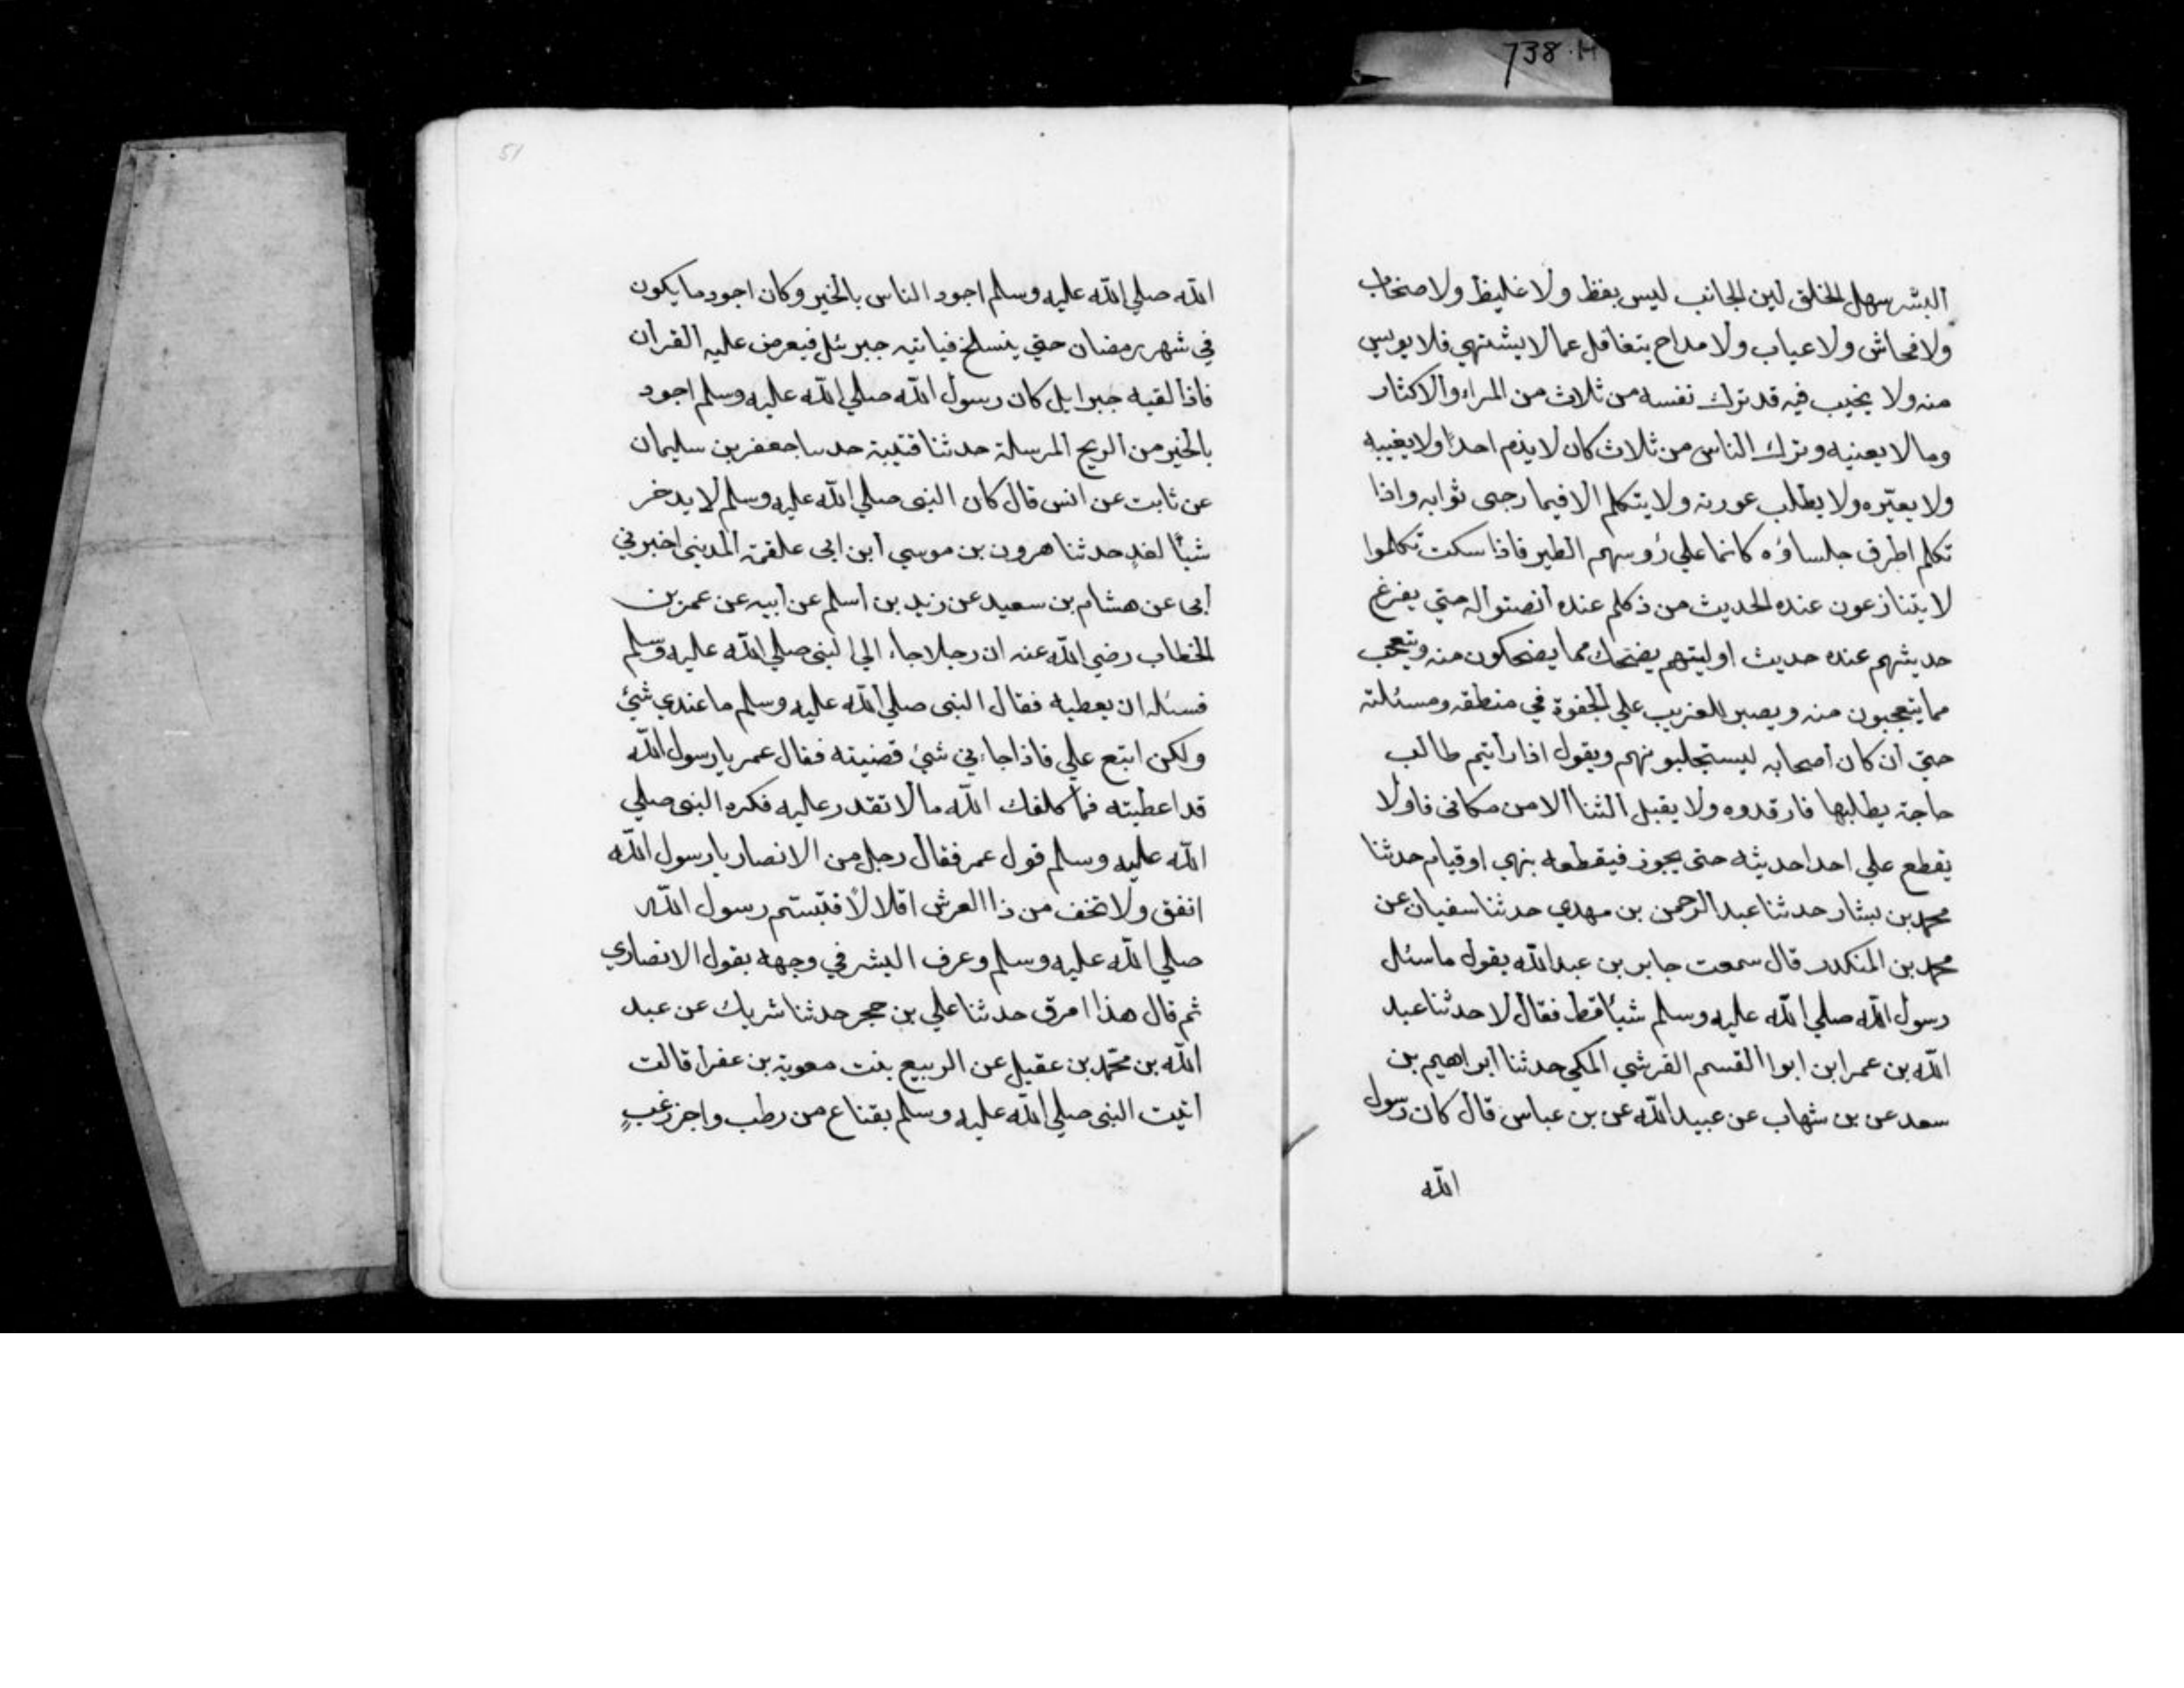 738.H
البشر سهل الخلق لين الجانب ليس بفظ ولا غليظ ولا صخاب
ولا فحاش ولا عياب ولا مداح يتغافل عما لا يشتهي فلا يويس
منه ولا يخيب فيه قد ترك نفسه من ثلاث من المراء والاكثار
وما لا يعنيه وترك الناس من ثلاث كان لا يذم احدًا ولا يغيبه
ولا يعيّره ولا يطلب عورته ولا يتكلم الا فيما رجى ثوابه واذا
تكلم اطرف جلساؤه كانما علي رُوسهم الطير فاذا سكت تكلموا
لا يتنازعون عنده الحديث من ذكلم عنده انصتوا له حتي يفرغ
حديثهم عنده حديث اوليتهم يضحك مما يضحكون منه ويتعجب
مما يتعجبون منه ويصبر للغريب علي الجفوة في منطقه ومسئلته
حتي ان كان اصحابه ليستجلبونهم ويقول اذا رايتم طالب
حاجة يطلبها فارقدوه ولا يقبل الثنا الا من مكانى فاولا
يقطع علي احد احديثه حتى يجوز فيقطعه بنهي او قيام حدثنا
محمد بن بشار حدثنا عبد الرحمن بن مهدي حدثنا سفيان عن
محمد بن المنكدر قال سمعت جابر بن عبد الله يقول ما سئل
رسول الله صلي الله عليه وسلم شيئا قط فقال لا حدثنا عبد
الله بن عمر ابن ابوا القسم القرشي المكي حدثنا ابراهيم بن
سعد عن بن شهاب عن عبيد الله عن بن عباس قال كان رسول
الله
51
الله صلي الله عليه وسلم اجود الناس بالخير وكان اجود ما يكون
في شهر رمضان حتي ينسلخ فياتيه جبرئل فيعرض عليه القران
فاذا لقيه جبرايل كان رسول الله صلي الله عليه وسلم اجود
بالخير من الريح المرسلة حدثنا قتيبة حدسا جعفر بن سليمان
عن ثابت عن انس قال كان النبى صلي الله عليه وسلم لا يدخر
شيئًا لغدٍ حدثنا هرون بن موسي ابن ابى علقمة المديني اخبرني
أبى عن هشام بن سعيد عن زيد بن أسلم عن أبيه عن عمر بن
الخطاب رضي الله عنه ان رجلا جاء الي النبى صلي الله عليه وسلم
فسئله ان يعطيه فقال النبى صلي الله عليه وسلم ما عندي شيئ
ولكن ابتع علي فاذا جاءني شيئ قضيته فقال عمر يا رسول الله
قد اعطيته فما كلفك الله ما لا تقدر عليه فكره النبى صلي
الله عليه وسلم قول عمر فقال رجل من الانصار يا رسول الله
انفق ولا تخف من ذا العرش اقلالًا فتبسّم رسول الله
صلي الله عليه وسلم وعرف البشر في وجهه بقول الانصاري
ثم قال هذا امرق حدثنا علي بن حجر حدثنا شريك عن عبد
الله بن محمّد بن عقيل عن الربيع بنت معوية بن عفرا قالت
اتيت النبى صلي الله عليه وسلم بقناع من رطب واجز زغبٍ